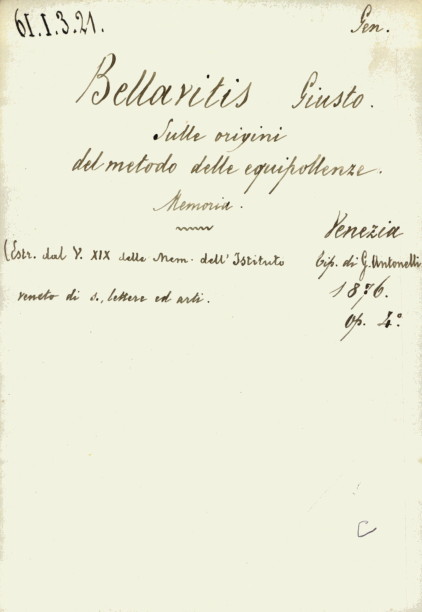 61.1.3.21. Gen.
Bellavitis Giusto.
Sulle origini
del metodo delle equipollenze.
Memoria.
Venezia
(Estr. dal V. XIX delle Mem. dell'Istituto Tip. di G. Antonelli
veneto di s., lettere ed arti. 1876.
op. 4°.
C